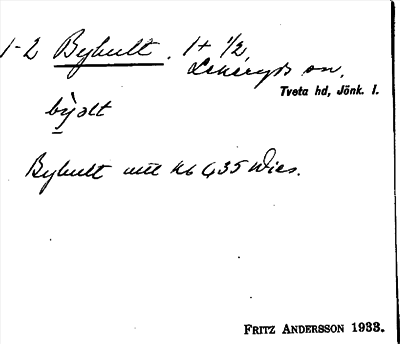 1-2 Byhult. 1+ 1/2
Lekeryds sn.
Tveta hd, Jönk. l.
bỳəlt
Byhult utt Kb 6,35 Wies.
FRITZ ANDERSSON 1933.